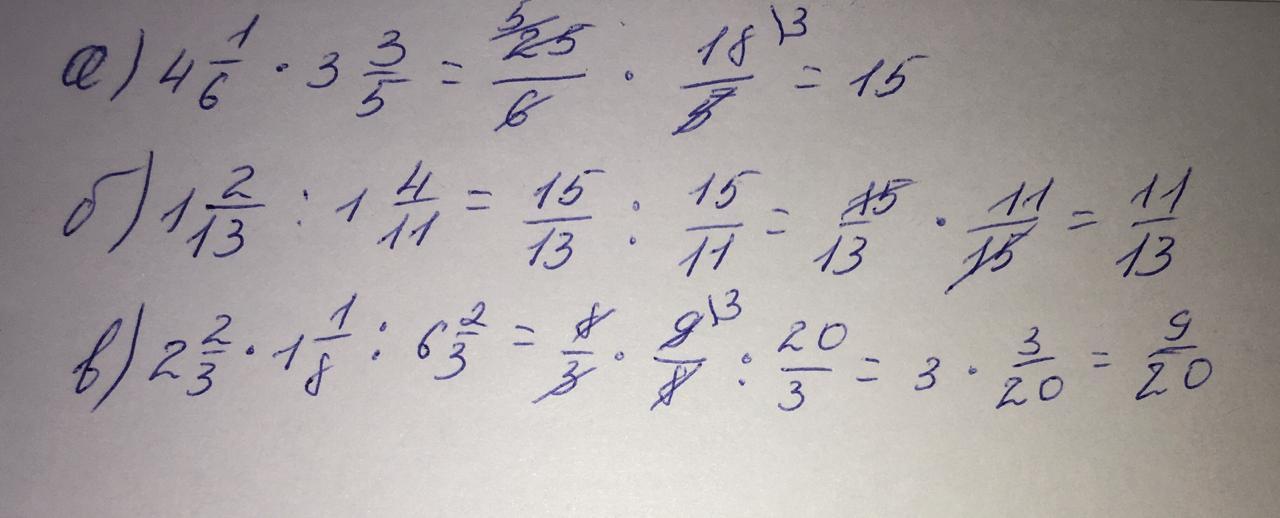 а) 4 1/6 · 3 3/5 = 25\5/6 · 18\3/5 = 15
б) 1 2/13 : 1 4/11 = 15/13 : 15/11 = 15/13 · 11/15 = 11/13
в) 2 2/3 · 1 1/8 : 6 2/3 = 8/3 · 9\3/8 : 20/3 = 3 · 3/20 = 9/20